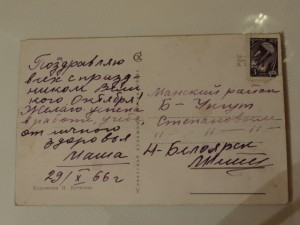 Поздравляю
всех с празд-
ником Вели-
кого Октября!
Желаю успеха
в работе, учебе
отличного
здоровья
Наша
29/X 66 г
Художник
Манский район
Б - Унгут
Степановым
" — " — "
Н - Белоярск